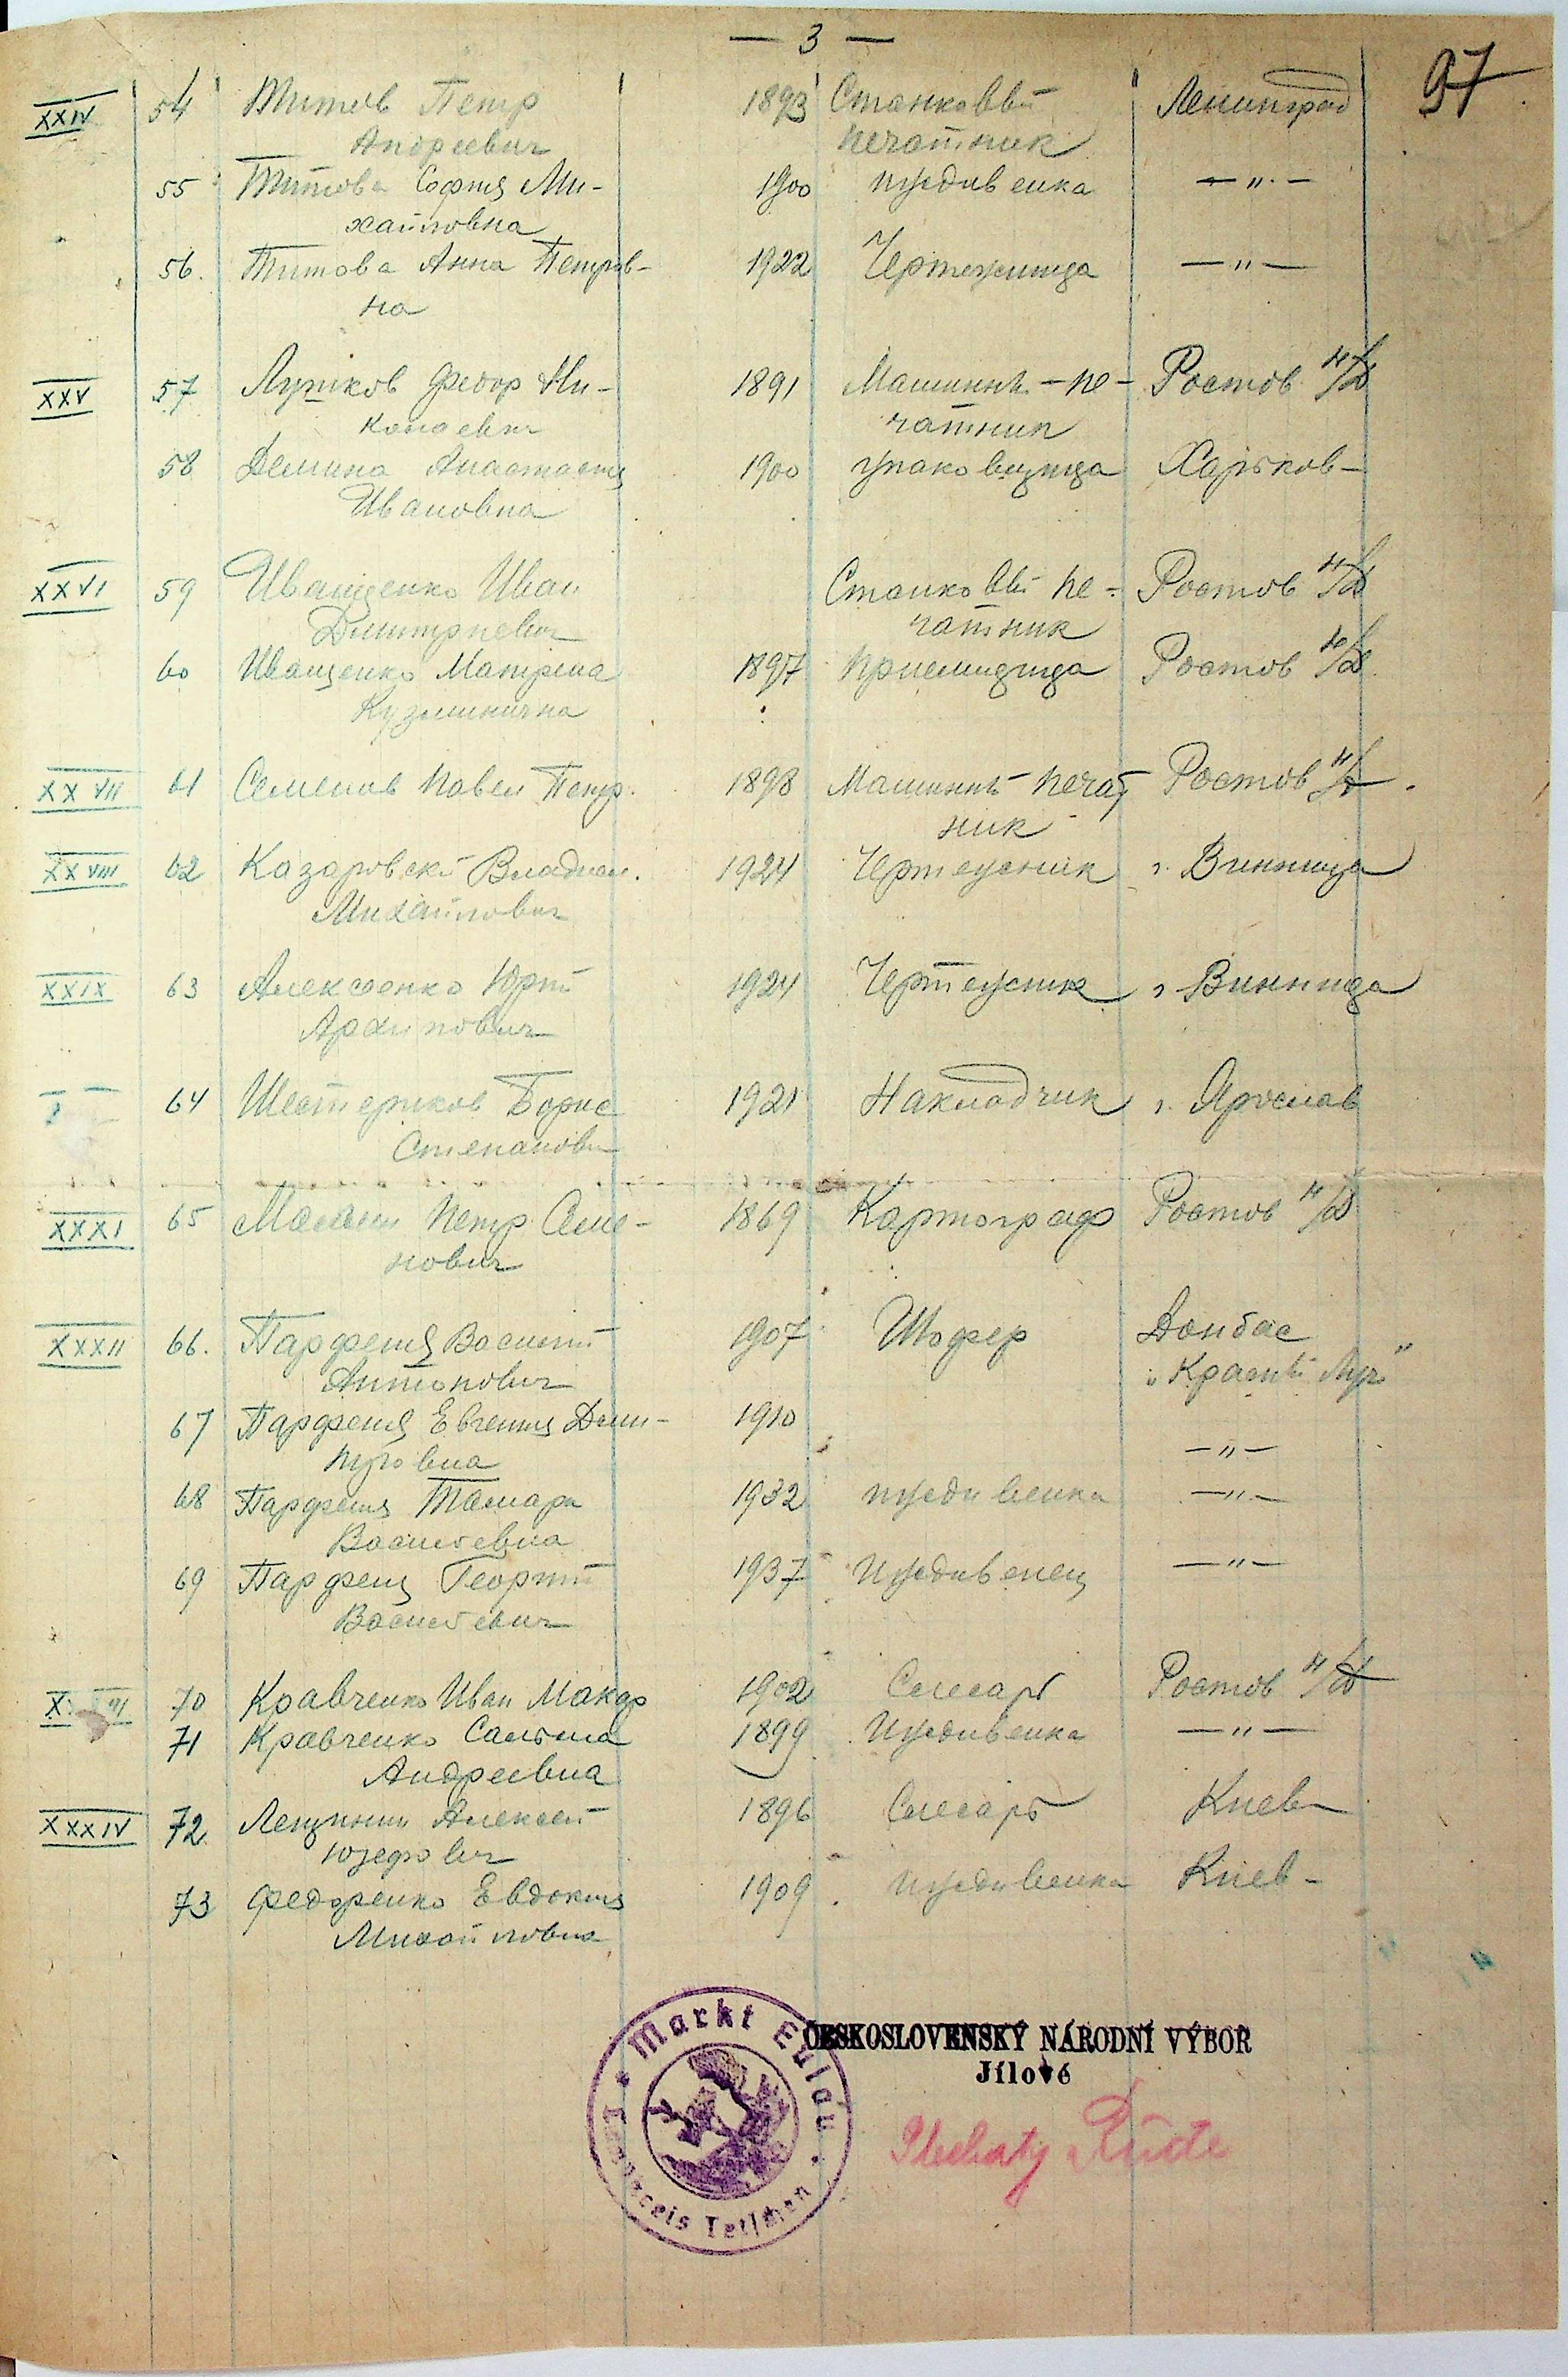 — 3 —
97
XXIV 54 Титов Петр 1893 Станковый Ленинград
Андреевич печатник
55 Титова София Ми- 1900 иждивенка — " —
хайловна
56. Титова Анна Петров- 1922 Чертежница — " —
на
XXV 57 Федор Ни- 1891 Машинист-пе- Ростов н/Д
колаевич чатник
58 Демина Анастасия 1900 упаковщица Харьков
Ивановна
XXVI 59 Иващенко Иван Станковый пе- Ростов н/Д
Дмитриевич чатник
60 Иващенко Матрена 1897 приемщица Ростов н/Д
Кузминична
XXVII 61 Семенов Павел Петр. 1898 Машинист печат Ростов н/Д
ник
XXVIII 62 Казаровский Владим. 1924 Чертежник г. Винница
Михайлович
XXIX 63 Алексеенко Юрий 1924 Чертежник г. Винница
Архипович
64 Шестериков Борис 1921 Накладчик г. Ярослав
Степанович
XXXI 65 Петр Семе- 1869 Картограф Ростов н/Д
нович
XXXII 66. Парфенец Василий 1907 Шофер Донбас
Антонович "Красный Луч"
67 Парфенец Евгения Дми- 1910 — " —
68 Парфенец Тамара 1932 иждивенка — " —
Васильевна
69 Парфенец Георгий 1937 Иждивенец — " —
Васильевич
70 Кравченко Иван Макар 1902 Слесарь Ростов н/Д
71 Кравченко 1899 Иждивенка — " —
Андреевна
XXXIV 72 Алексей 1896 Слесарь Киев
Юзефович
73 Федоренко Евдокия 1909 иждивенка Киев
Михайловна
Markt Eulau
ČESKOSLOVENSKÝ NÁRODNÍ VÝBOR
Jílové